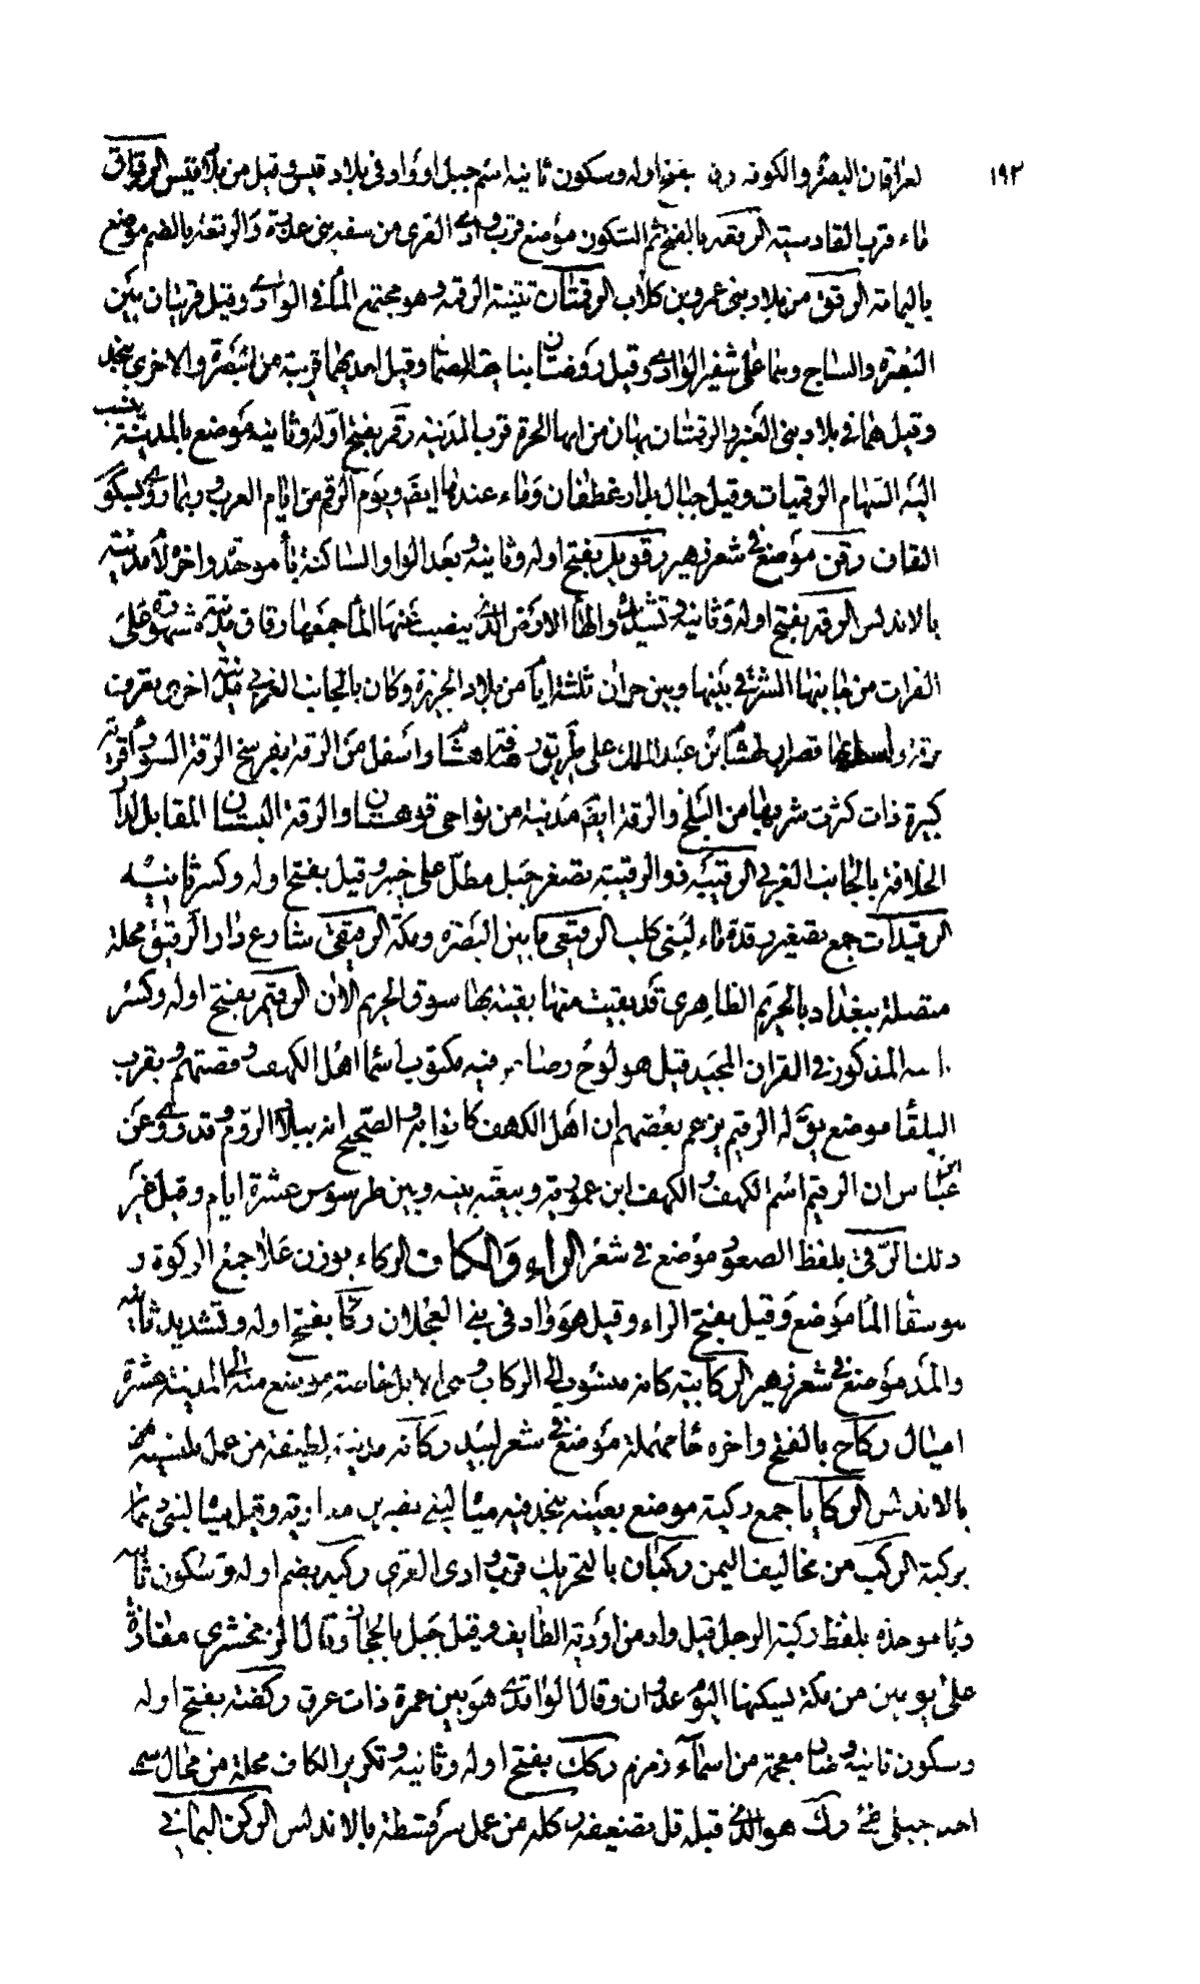 ١٩٢
العراقان البصرة والكوفة رقد بفتح اوله وسكون ثانيه اسم جبل او واد في بلاد قيس وقيل من بلاد قيس الرقراق
ماء قرب القادسية الرقعة بالفتح ثم السكون موضع قرب وادي القرى من سفه بني عذرة والرقعة بالضم موضع
باليمامة الرقق من بلاد بني عمرو بن كلاب الرقمتان تثنية الرقمة وهو مجتمع الماء في الوادي وقيل قريتان بين
البصرة والنباج وهما على شفير الوادي وقيل روضتان بناحية الصمان وقيل احديهما قريبة من البصرة والاخرى بنجد
وقيل هما في بلاد بني العنبر والرقمتان نهيان من انهاء الحرة قرب المدينة رقم بفتح اوله وثانيه موضع بالمدينة ينسب
اليه السهام الرقميات وقيل جبال ببلاد غطفان وماء عندها ايضا ويوم الرقم من ايام العرب وربما روى بسكون
القاف رقن موضع في شعر زهير رقوبل بفتح اوله وثانيه وبعد الواو الساكنة باء موحدة واخره لام مدينة
بالاندلس الرقة بفتح اوله وثانيه وتشديده والهاء الارض الذي ينضب عنها الماء جمعها رقاق مدينة مشهورة على
الفرات من جانبها الشرقي بينها وبين حران ثلثة ايام من بلاد الجزيرة وكان بالجانب الغربي مدينة اخرى تعرف
برقة واسط بها قصران لهشام بن عبد الملك على طريق رصافة هشام واسفل من الرقة بفرسخ الرقة السوداء قرية
كبيرة ذات كثرت شربها من البليخ والرقة ايضا مدينة من نواحي قوهستان والرقة البستان المقابل لدار
الخلافة بالجانب الغربي الرقيبة ذو الرقيبة تصغير جبل مطل على خيبر وقيل بفتح اوله وكسر ثانيه
الرقيدات جمع تصغير رقدة ماء لبني كلب الرقيعي ما بين البصرة ومكة الرقيق شارع دار الرقيق محلة
متصلة ببغداد بالحريم الطاهري قد بقيت منها بقية بها سوق الحريم الان الرقيم بفتح اوله وكسر
ثانيه المذكور في القران المجيد قيل هو لوح رصاص فيه مكتوب اسماء اهل الكهف وقصتهم وبقرب
البلقاء موضع يق له الرقيم يزعم بعضهم ان اهل الكهف كانوا به والصحيح انه ببلاد الروم وقد روى عن
ابن عباس ان الرقيم اسم الكهف والكهف ابن عمورية وبيعته بينه وبين طرسوس عشرة ايام وقيل غير
ذلك الرقي بلفظ الصعود موضع في شعر الراء والكاف الركاء بوزن علاء جمع الركوة و
هو سقاء الماء موضع وقيل بفتح الراء وقيل هو واد في بني العجلان ركا بفتح اوله وتشديد ثانيه
والمد موضع في شعر زهير الركابية كانه منسوب الى الركاب وهي الابل خاصة موضع منه الى المدينة عشرة
اميال ركاح بالفتح واخره حاء مهملة موضع في شعر لبيد ركانة مدينة لطيفة من عمل بلنسية
بالاندلس الركايا جمع ركية موضع بعينه بنجد فيه مياه لبني نصر بن معاوية وقيل مياه لبني دهمان
بركبة الركب من مخاليف اليمن ركبان بالتحريك قرب وادي القرى ركبه بضم اوله وسكون ثانيه
وباء موحدة بلفظ ركبة الرجل قيل واد من اودية الطايف وقيل جبل بالحجاز وقال الزمخشري مفازة
على يومين من مكة يسكنها اليوم عدوان وقال الواقدي هو بين غمرة وذات عرق ركضة بفتح اوله
وسكون ثانيه وضاد معجمة من اسماء زمزم ركك بفتح اوله وثانيه وتكرير الكاف محلة من محال سلمى
احد جبلي طي رك هو الذي قبله قل تضعيفه ركله من عمل سرقسطة بالاندلس الركن اليماني